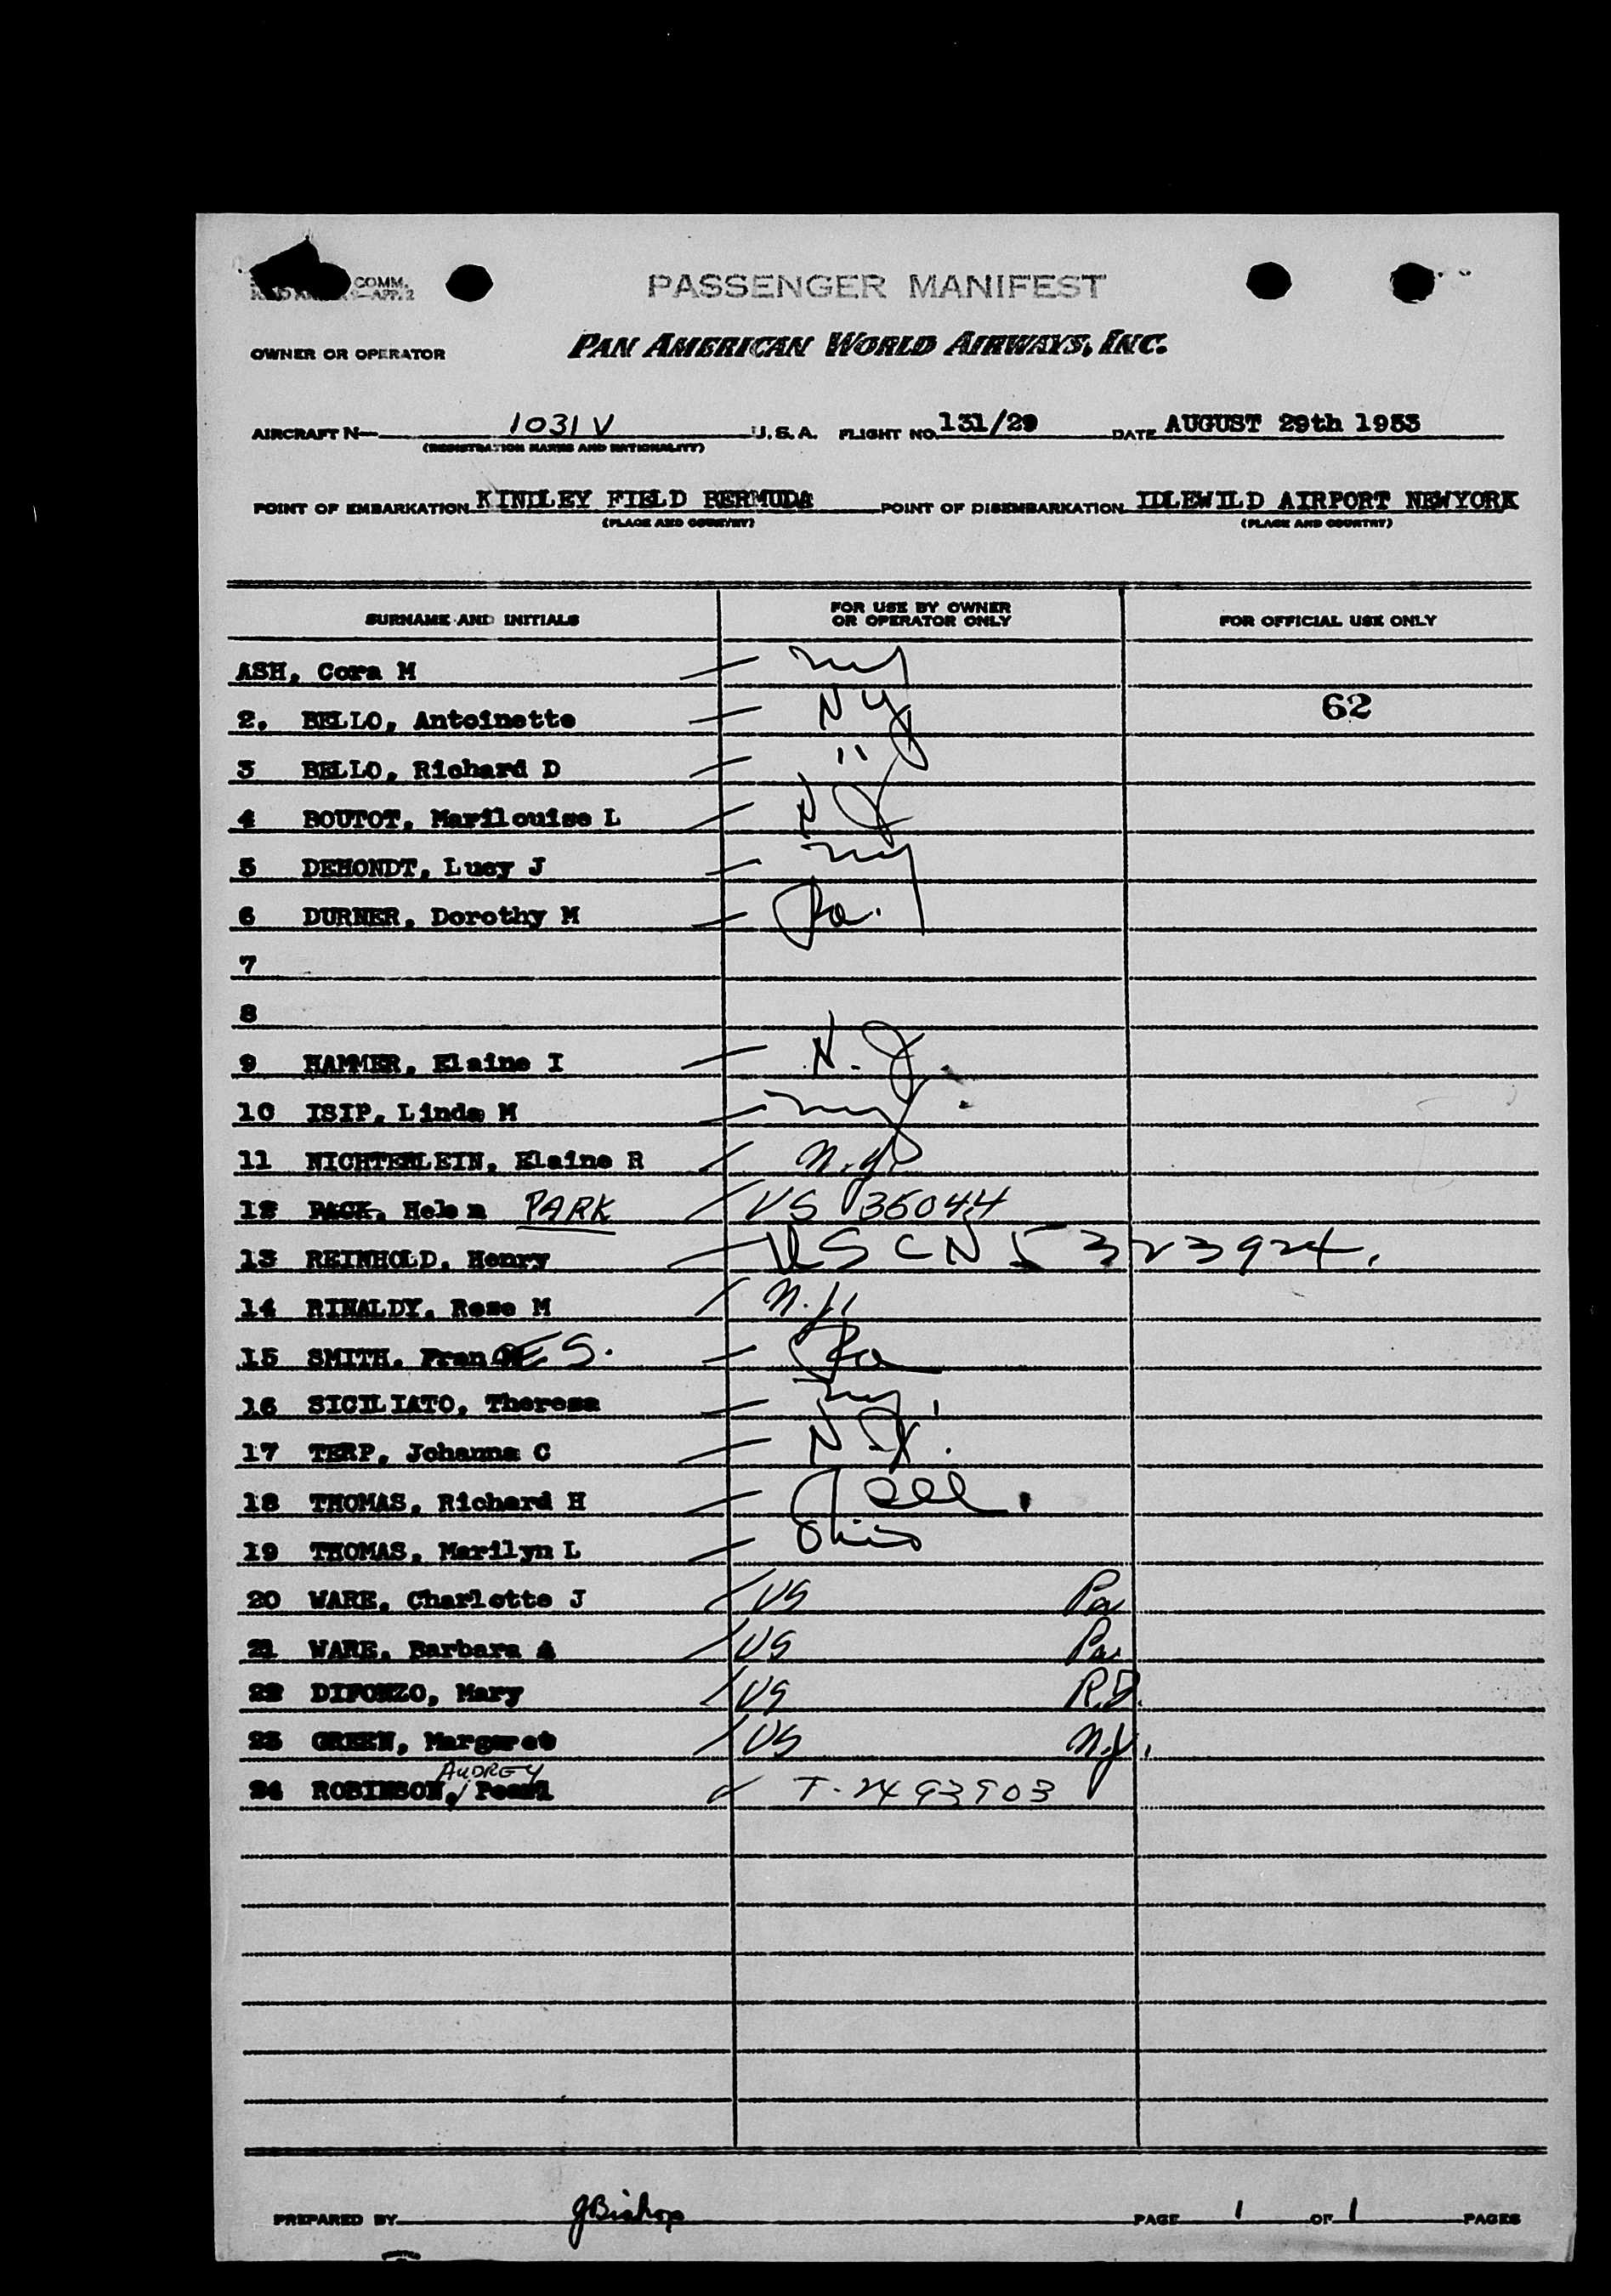 COMM.
APP. 2
PASSENGER MANIFEST
OWNER OR OPERATOR PAN AMERICAN WORLD AIRWAYS, INC.
AIRCRAFT N— 1031 V U.S.A. FLIGHT NO. 131/29 DATE AUGUST 29th 1953
(REGISTRATION MARKS AND NATIONALITY)
POINT OF EMBARKATION KINDLEY FIELD BERMUDA POINT OF DISEMBARKATION IDLEWILD AIRPORT NEWYORK
(PLACE AND COUNTRY) (PLACE AND COUNTRY)
SURNAME AND INITIALS FOR USE BY OWNER OR OPERATOR ONLY FOR OFFICIAL USE ONLY
ASH, Cora M ny
2. BELLO, Antoinette NY 62
3 BELLO, Richard D "
4 BOUTOT, Marilouise L NJ
5 DEHONDT, Lucy J ny
6 DURNER, Dorothy M Pa.
7
8
9 HAMMER, Elaine I N.J.
10 ISIP, Linda M ny
11 NICHTERLEIN, Elaine R n.y.
12 PACK, Helen PARK US 35044
13 REINHOLD, Henry USCN 5323924.
14 RINALDY, Rose M n.y.
15 SMITH, FranCES. Pa
16 SICILIATO, Theresa ny
17 TERP, Johanna C N.Y.
18 THOMAS, Richard H Ill.
19 THOMAS, Marilyn L Ohio
20 WARE, Charlotte J US Pa
21 WARE, Barbara A US Pa.
22 DIFONZO, Mary US R.I.
23 GREEN, Margaret US N.Y.
AUDREY
24 ROBINSON, Pearl T-2493903
PREPARED BY JBishop PAGE 1 OF 1 PAGES